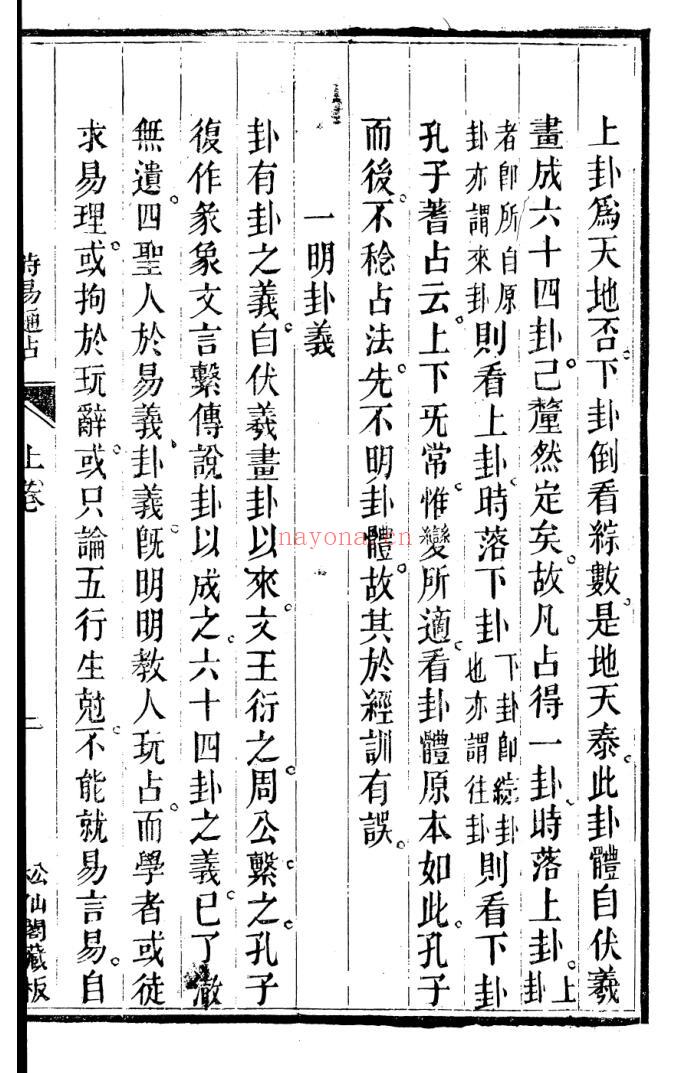 上卦爲天地否下卦倒看綜數是地天泰此卦體自伏羲
畫成六十四卦已釐然定矣故凡占得一卦時落上卦上卦
者卽所自原卦亦謂來卦則看上卦時落下卦下卦卽綜卦也亦謂往卦則看下卦
孔子蓍占云上下旡常惟變所適看卦體原本如此孔子
而後不稔占法先不明卦體故其於經訓有誤
一明卦義
卦有卦之義自伏羲畫卦以來文王衍之周公繫之孔子
復作彖象文言繫傳說卦以成之六十四卦之義已了澈
無遺四聖人於易義卦義旣明明教人玩占而學者或徒
求易理或拘於玩辭或只論五行生尅不能就易言易自
時易通占
上卷
二
松仙閣藏板
nayona.cn